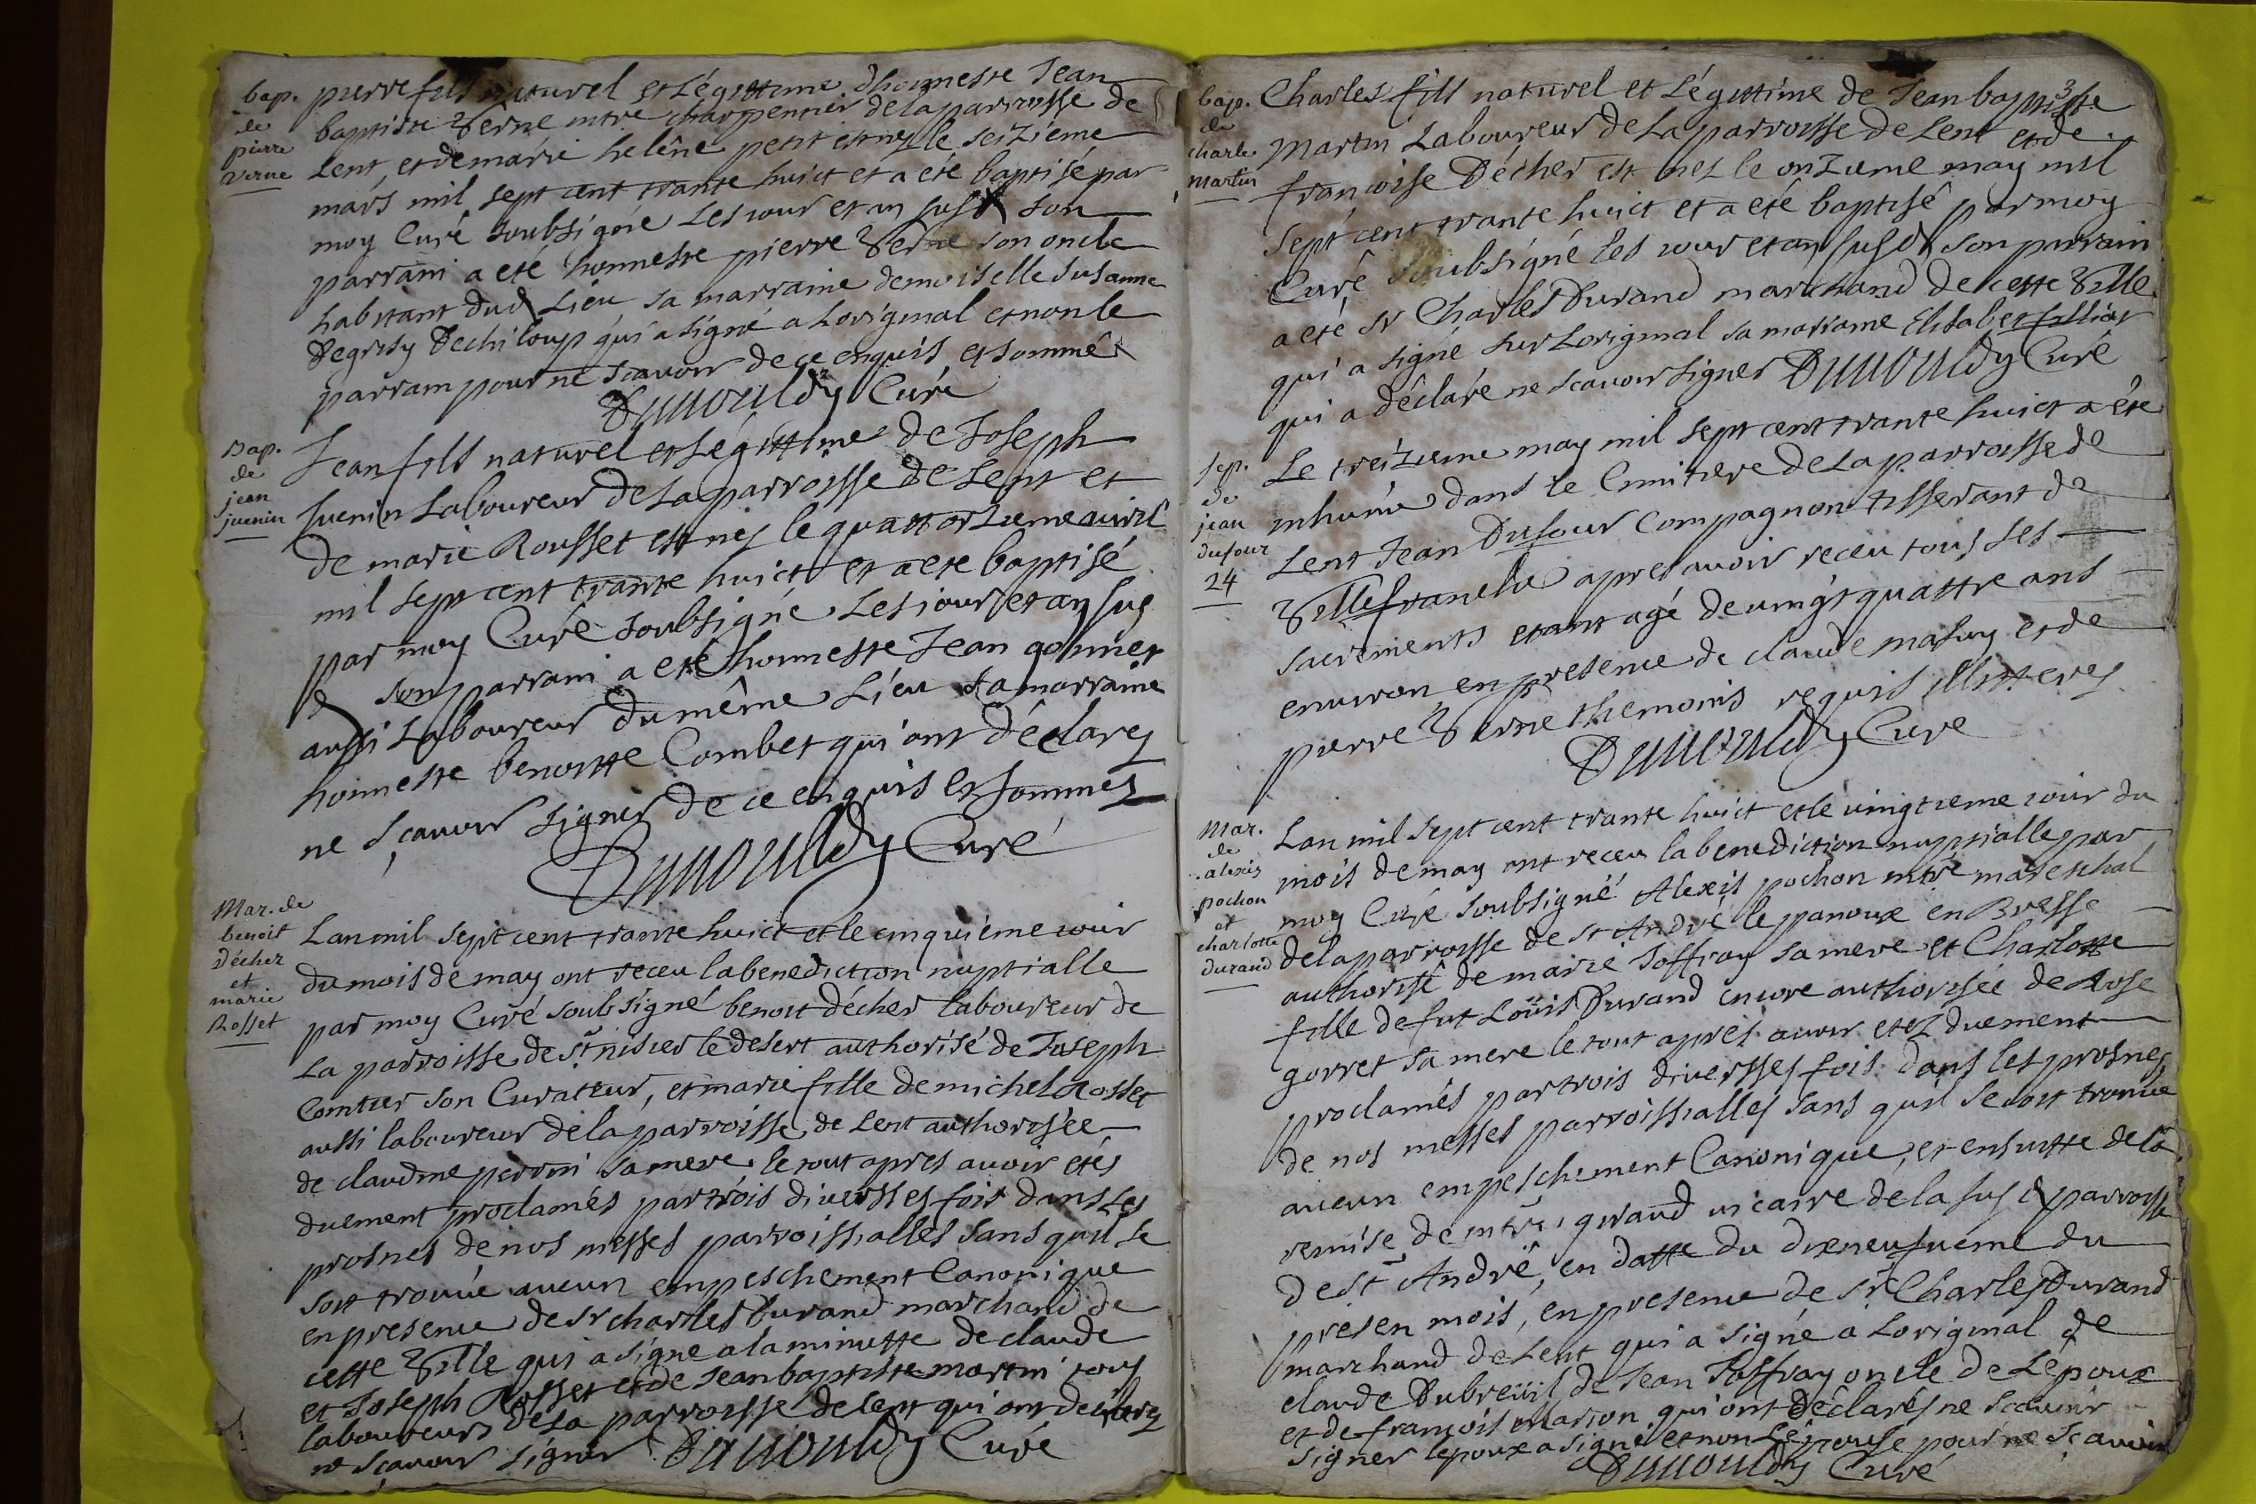 bap.
de
pierre
verne
pierre fils naturel et légittime d'honneste Jean
baptiste Verne mtre charpentier de la parroisse de
Lent, et de marie helêne petit est nez le seizieme
mars mil sept cent trante huict et a eté baptisé par
moy Curé soubsigné les jour et an susd son
parrain a eté honneste pierre Verne son oncle
habitant dud Lieu sa marraine demoiselle susanne
Degrisy Dechiloup qui a signé a Loriginal et non le
parrain pour ne scavoir de ce enquis et sommé
Curé
Bap.
de
jean
juenin
Jean fils naturel et Légittime de Joseph
Juenin Laboureur de La parroisse de Lent et
de marie Rousset est nez le quattorzieme avril
mil sept cent trante huict et a eté baptisé
par moy Curé soubsigné Les jour et an sus
d son parrain a eté honneste Jean
aussi Laboureur du même Lieu sa marraine
honneste benoitte Combet qui ont déclarez
ne sçavoir signer de ce enquis et sommez
Curé
Mar. de
benoit
Décher
et
marie
Rosset
Lan mil sept cent trante huict et le cinquiéme jour
du mois de may ont receu la benediction nuptialle
par moy Curé soubsigné benoit décher laboureur de
La parroisse de st nisier le desert authorisé de Joseph
Comtier son Curateur, et marie fille de michel Rosset
aussi laboureur de la parroisse de Lent authorisée
de claudine perrin sa mere le tout apres avoir etés
duement proclamés par trois diversses fois dans Les
prosnes de nos messes parroissialles sans quil se
soit trouvé aucun empeschement Canonique
en presence de sr charles Durand marchand de
cette Ville qui a signé a la minutte de claude
et Joseph Rosset et de Jean baptiste martin tous
laboureurs de La parroisse de Lent qui ont declarez
ne sçavoir signer Curé
3
bap.
de
charle
martin
Charles fils naturel et Légittime de Jean baptiste
Martin Laboureur de La parroisse de Lent et de
françoise Décher est nez le onzieme may mil
sept cent trante huict et a eté baptisé par moy
Curé soubsigné les jour et an susd son parrain
a eté sr Charles Durand marchand de cette Ville
qui a signé sur Loriginal sa marraine Elisabet
qui a déclaré ne scavoir signer Curé
sep.
de
jean
dufour
24
Le treizieme may mil sept cent trante huict a eté
inhumé dans le Cimitiere de La parroisse de
Lent Jean Dufour Compagnon tisserant de
Villefranche apres avoir receu tous ses
sacrements etant agé de vingt quattre ans
environ en presence de claude mafuy et de
pierre Verne themoins requis illitterez
Curé
Mar.
de
alexis
pochon
et
charlotte
durand
Lan mil sept cent trante huict et le vingtieme jour du
mois de may ont receu la benediction nuptialle par
moy Curé soubsigné Alexis pochon mtre mareschal
de la parroisse de st André le panoux en Bresse
authorisé de marie Joffray sa mere et Charlotte
fille de fut Loüis Durand encore authorisée de Rose
gorret sa mere le tout apres avoir etez duement
proclamés par trois diversses fois dans les prosnes
de nos messes parroissialles sans quil se soit trouvé
aucun empeschement Canonique, et ensuitte de la
remise de mtre giraud vicaire de la susd parroisse
de st André, en datte du dixneufuiéme du
présen mois, en presence de sr Charles Durand
marchand de Lent qui a signé a Loriginal de
claude Dubreüil, de Jean Joffray oncle de Lépoux
et de françois marion qui ont déclarés ne scavoir
signer Lépoux a signé et non Lépouse pour ne sçavoir
Curé